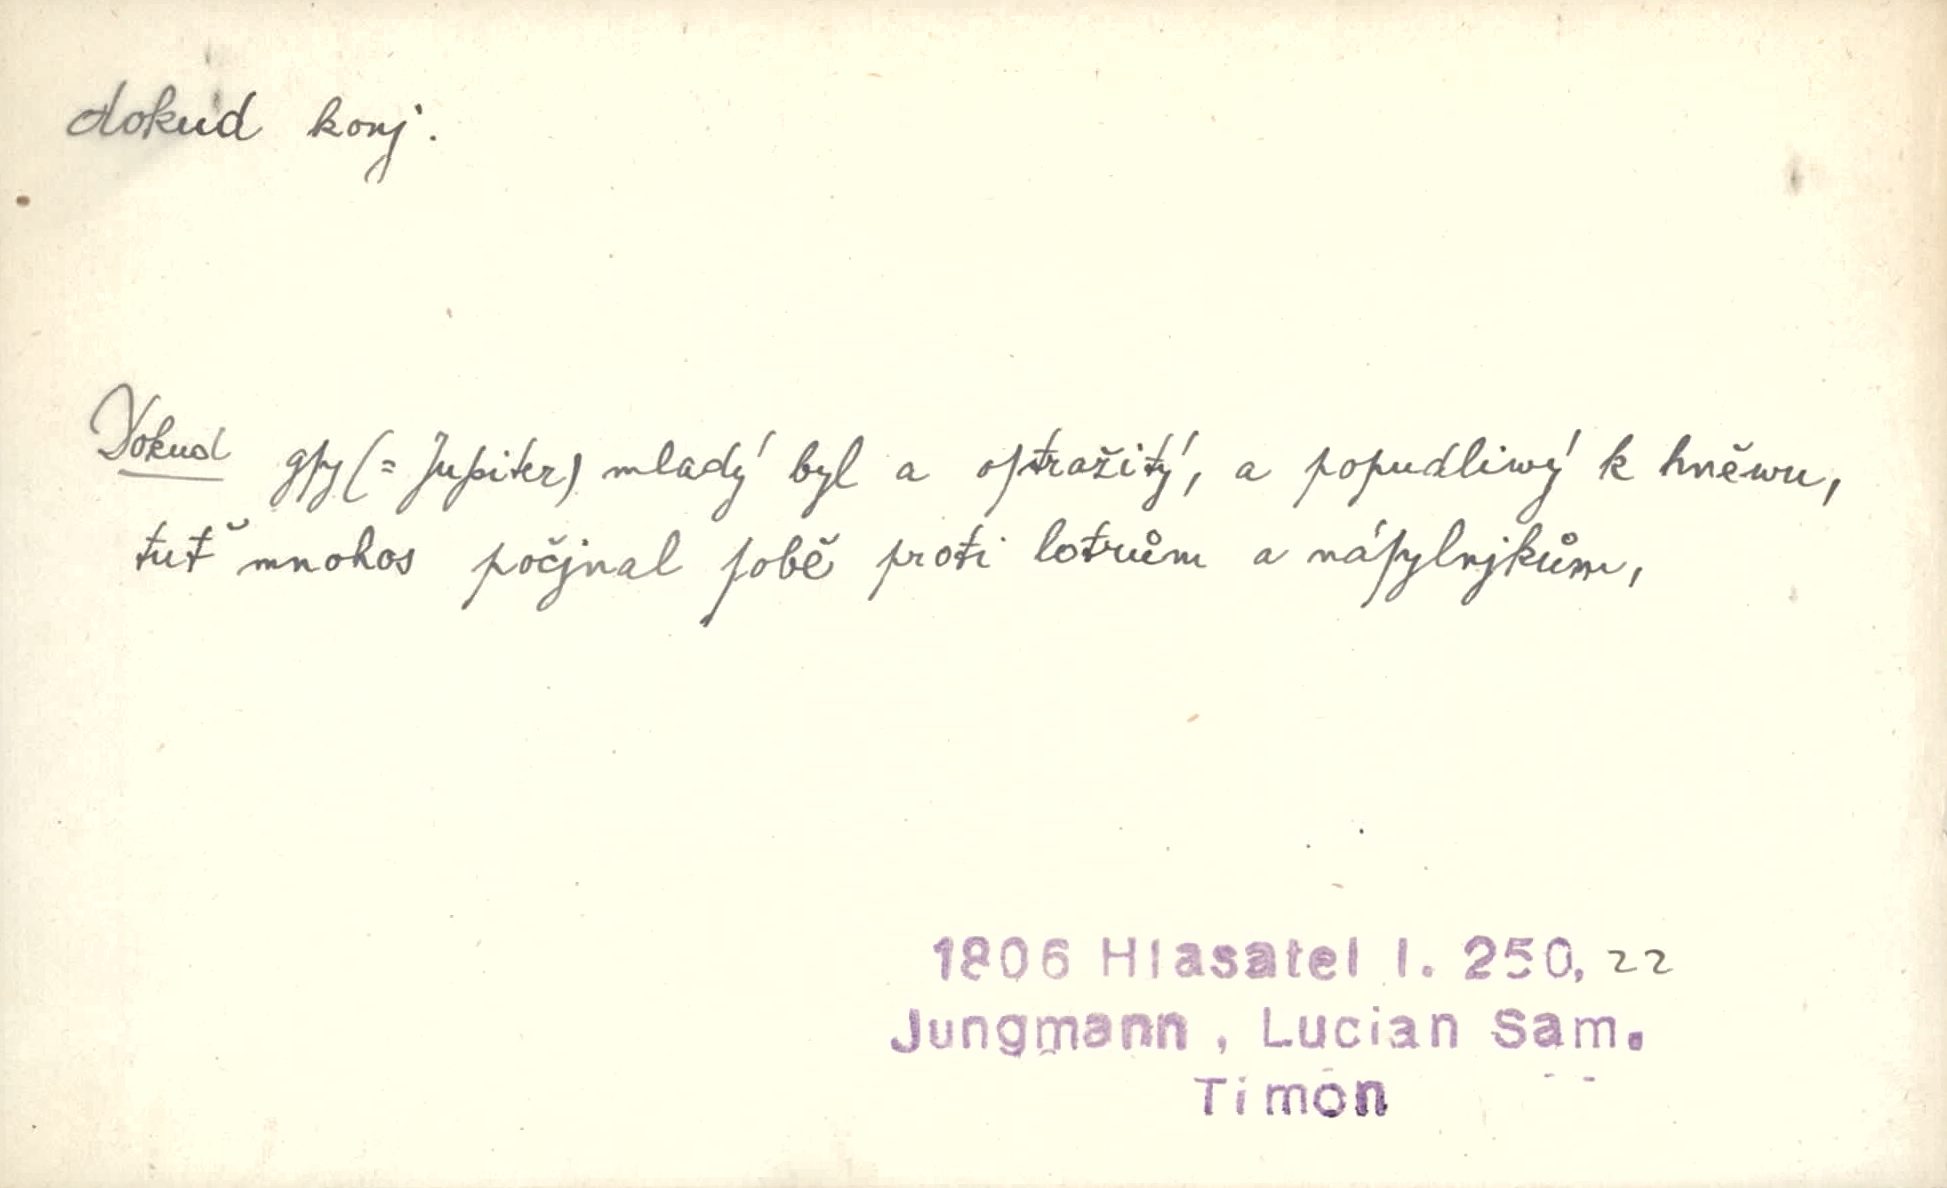 dokud konj.
Dokud gſy (= Jupiter) mladý byl a oſtražitý, a popudliwý k hněwu,
tuť mnohos počjnal ſobě proti lotrům a náſylnjkům,
1806 Hlasatel I. 250, 22
Jungmann, Lucian Sam.
Timon